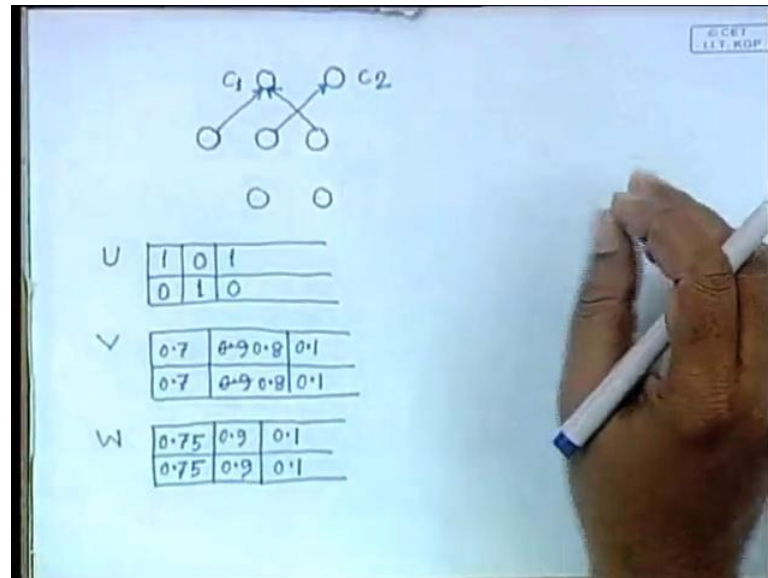 © CET
I.I.T. KGP
C1 C2
U 1 0 1
0 1 0
V 0.7 0.9 0.8 0.1
0.7 0.9 0.8 0.1
W 0.75 0.9 0.1
0.75 0.9 0.1